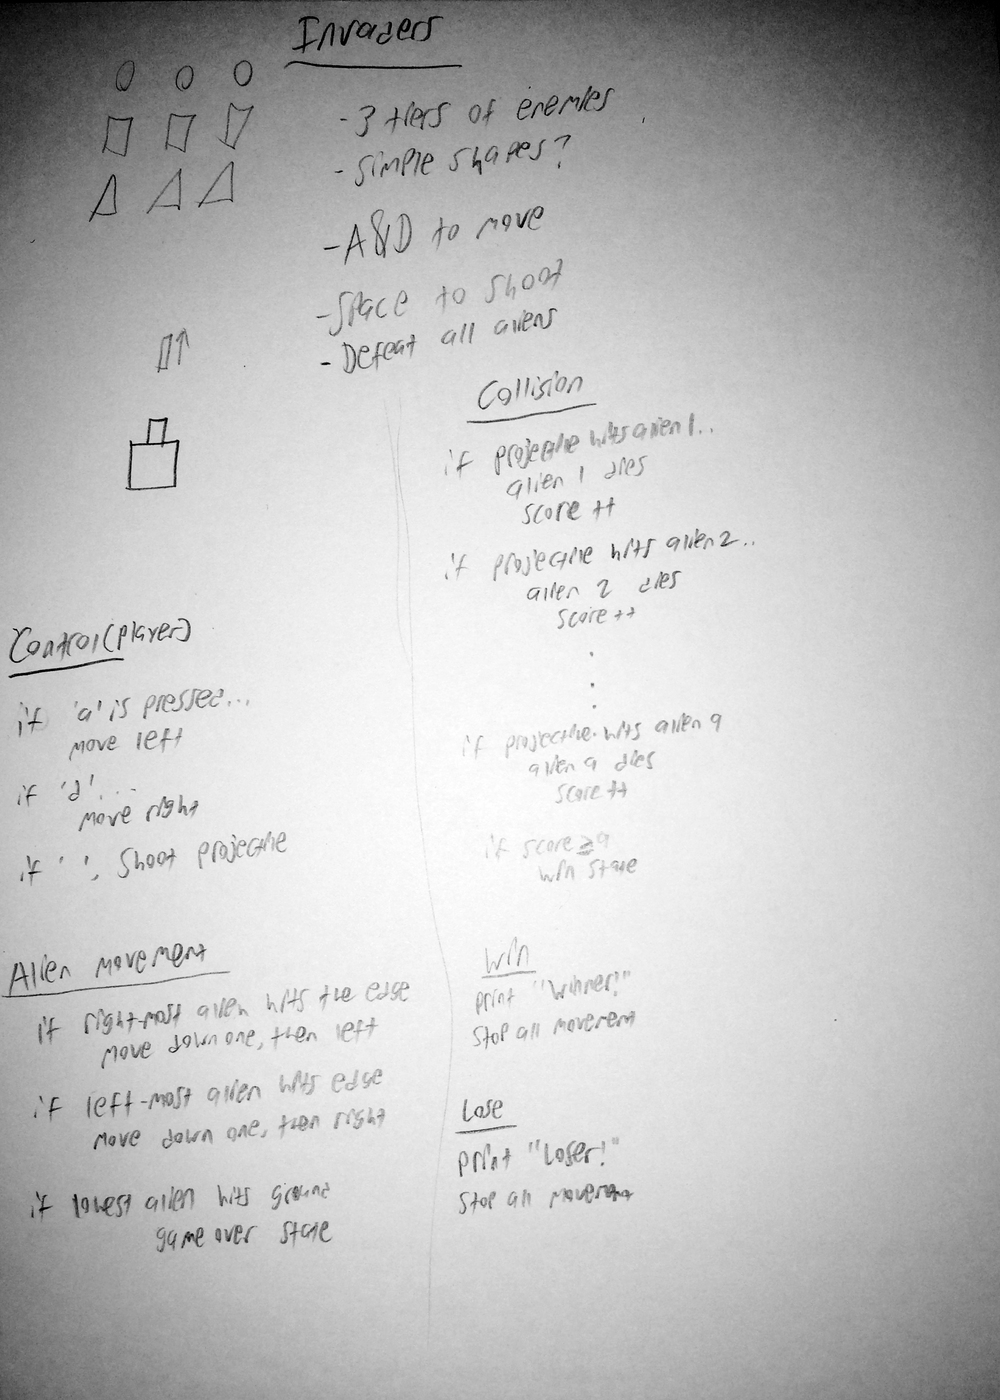 Invaders
- 3 tiers of enemies
- Simple shapes?
- A&D to move
- Space to shoot
- Defeat all aliens
Collision
if projectile hits alien 1..
alien 1 dies
score ++
if projectile hits alien 2..
alien 2 dies
score ++
.
.
.
if projectile hits alien 9
alien 9 dies
score ++
if score ≥ 9
win state
Win
print "Winner!"
Stop all movement
Lose
print "Loser!"
Stop all movement
Control(Player)
if 'a' is pressed...
move left
if 'd'...
move right
if ' ', Shoot projectile
Alien movement
if right-most alien hits the edge
move down one, then left
if left-most alien hits edge
move down one, then right
if lowest alien hits ground
game over state